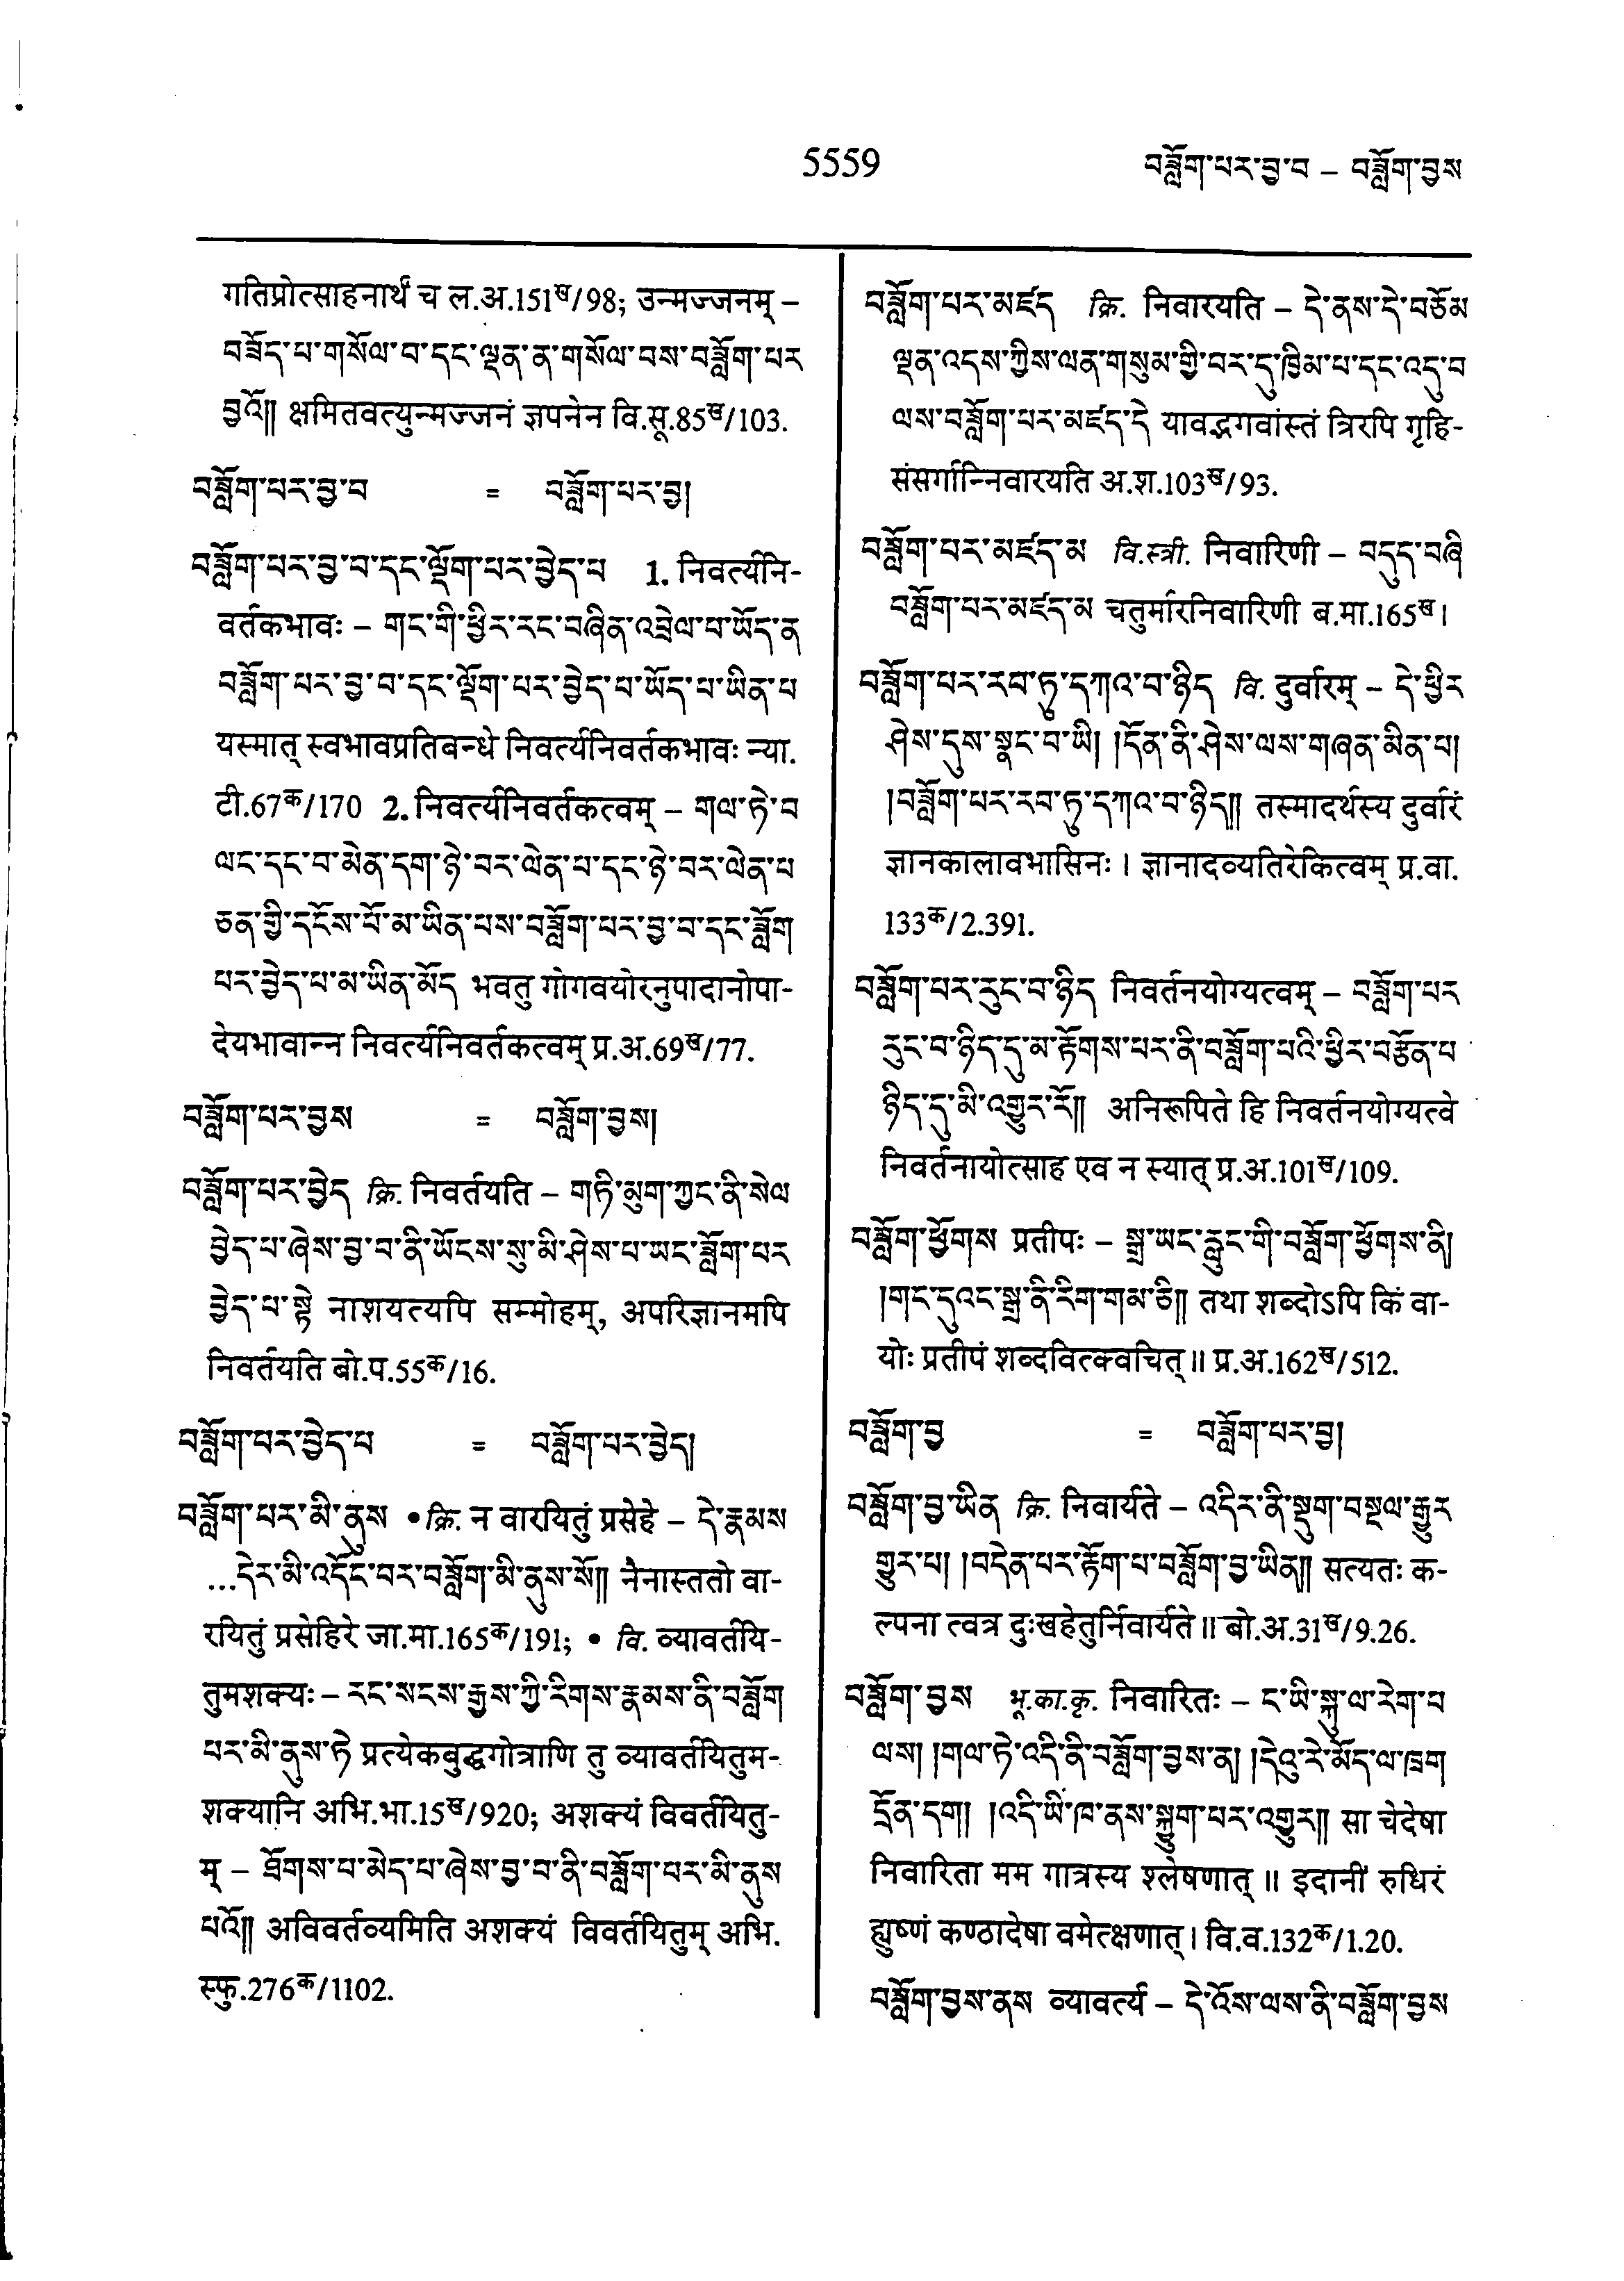 5559
བཟློག་པར་བྱ་བ – བཟློག་བྱས
गतिप्रोत्साहनार्थं च ल.अ.151ख/98; उन्मज्जनम् –
བཟོད་པ་གསོལ་བ་དང་ལྡན་ན་གསོལ་བས་བཟློག་པར
བྱའོ༎ क्षमितवत्युन्मज्जनं ज्ञपनेन वि.सू.85ख/103.
བཟློག་པར་བྱ་བ = བཟློག་པར་བྱ།
བཟློག་པར་བྱ་བ་དང་ལྡོག་པར་བྱེད་པ 1. निवर्त्यनि-
वर्तकभावः – གང་གི་ཕྱིར་རང་བཞིན་འབྲེལ་བ་ཡོད་ན
བཟློག་པར་བྱ་བ་དང་ལྡོག་པར་བྱེད་པ་ཡོད་པ་ཡིན་པ
यस्मात् स्वभावप्रतिबन्धे निवर्त्यनिवर्तकभावः न्या.
टी.67क/170 2. निवर्त्यनिवर्तकत्वम् – གལ་ཏེ་བ
ལང་དང་བ་མེན་དག་ཉེ་བར་ལེན་པ་དང་ཉེ་བར་ལེན་པ
ཅན་གྱི་དངོས་པོ་མ་ཡིན་པས་བཟློག་པར་བྱ་བ་དང་ཟློག
པར་བྱེད་པ་མ་ཡིན་མོད भवतु गोगवयोरनुपादानोपा-
देयभावान्न निवर्त्यनिवर्तकत्वम् प्र.अ.69ख/77.
བཟློག་པར་བྱས = བཟློག་བྱས།
བཟློག་པར་བྱེད क्रि. निवर्तयति – གཏི་མུག་ཀྱང་ནི་སེལ
བྱེད་པ་ཞེས་བྱ་བ་ནི་ཡོངས་སུ་མི་ཤེས་པ་ཡང་ཟློག་པར
བྱེད་པ་སྟེ नाशयत्यपि सम्मोहम्, अपरिज्ञानमपि
निवर्तयति बो.प.55क/16.
བཟློག་པར་བྱེད་པ = བཟློག་པར་བྱེད།
བཟློག་པར་མི་ནུས •क्रि. न वारयितुं प्रसेहे – དེ་རྣམས
...དེར་མི་འདོང་བར་བཟློག་མི་ནུས་སོ༎ नैनास्ततो वा-
रयितुं प्रसेहिरे जा.मा.165क/191; • वि. व्यावर्तयि-
तुमशक्यः – རང་སངས་རྒྱས་ཀྱི་རིགས་རྣམས་ནི་བཟློག
པར་མི་ནུས་ཏེ प्रत्येकबुद्धगोत्राणि तु व्यावर्तयितुम-
शक्यानि अभि.भा.15ख/920; अशक्यं विवर्तयितु-
म् – ཐོགས་པ་མེད་པ་ཞེས་བྱ་བ་ནི་བཟློག་པར་མི་ནུས
པའོ༎ अविवर्तव्यमिति अशक्यं विवर्तयितुम् अभि.
स्फु.276क/1102.
བཟློག་པར་མཛད क्रि. निवारयति – དེ་ནས་དེ་བཅོམ
ལྡན་འདས་ཀྱིས་ལན་གསུམ་གྱི་བར་དུ་ཁྱིམ་པ་དང་འདུ་བ
ལས་བཟློག་པར་མཛད་དེ यावद्भगवांस्तं त्रिरपि गृहि-
संसर्गान्निवारयति अ.श.103ख/93.
བཟློག་པར་མཛད་མ वि.स्त्री. निवारिणी – བདུད་བཞི
བཟློག་པར་མཛད་མ चतुर्मारनिवारिणी ब.मा.165ख।
བཟློག་པར་རབ་ཏུ་དཀའ་བ་ཉིད वि. दुर्वारम् – དེ་ཕྱིར
ཤེས་དུས་སྣང་བ་ཡི། །དོན་ནི་ཤེས་ལས་གཞན་མིན་པ།
།བཟློག་པར་རབ་ཏུ་དཀའ་བ་ཉིད༎ तस्मादर्थस्य दुर्वारं
ज्ञानकालावभासिनः। ज्ञानादव्यतिरेकित्वम् प्र.वा.
133क/2.391.
བཟློག་པར་རུང་བ་ཉིད निवर्तनयोग्यत्वम् – བཟློག་པར
རུང་བ་ཉིད་དུ་མ་རྟོགས་པར་ནི་བཟློག་པའི་ཕྱིར་བརྩོན་པ
ཉིད་དུ་མི་འགྱུར་རོ༎ अनिरूपिते हि निवर्तनयोग्यत्वे
निवर्तनायोत्साह एव न स्यात् प्र.अ.101ख/109.
བཟློག་ཕྱོགས प्रतीपः – སྒྲ་ཡང་རླུང་གི་བཟློག་ཕྱོགས་ནི།
།གང་དུའང་སྒྲ་ནི་རིག་གམ་ཅི༎ तथा शब्दोऽपि किं वा-
योः प्रतीपं शब्दवित्क्वचित्॥ प्र.अ.162ख/512.
བཟློག་བྱ = བཟློག་པར་བྱ།
བཟློག་བྱ་ཡིན क्रि. निवार्यते – འདིར་ནི་སྡུག་བསྔལ་རྒྱུར
གྱུར་པ། །བདེན་པར་རྟོག་པ་བཟློག་བྱ་ཡིན༎ सत्यतः क-
ल्पना त्वत्र दुःखहेतुर्निवार्यते॥ बो.अ.31ख/9.26.
བཟློག་བྱས भू.का.कृ. निवारितः – ང་ཡི་སྐུ་ལ་རེག་པ
ལས། །གལ་ཏེ་འདི་ནི་བཟློག་བྱས་ན། །དེའུ་རེ་མོད་ལ་ཁྲག
དྲོན་དག། །འདི་ཡི་ཁ་ནས་སྐྱུག་པར་འགྱུར༎ सा चेदेषा
निवारिता मम गात्रस्य श्लेषणात्॥ इदानीं रुधिरं
ह्युष्णं कण्ठादेषा वमेत्क्षणात्। वि.व.132क/1.20.
བཟློག་བྱས་ནས व्यावर्त्य – དེ་འོས་ལས་ནི་བཟློག་བྱས